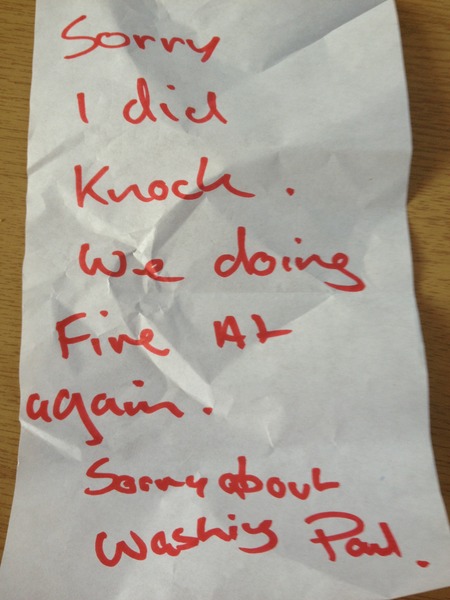 Sorry
I did
Knock.
We doing
Fire At
again.
Sorry about
Washing Paul.